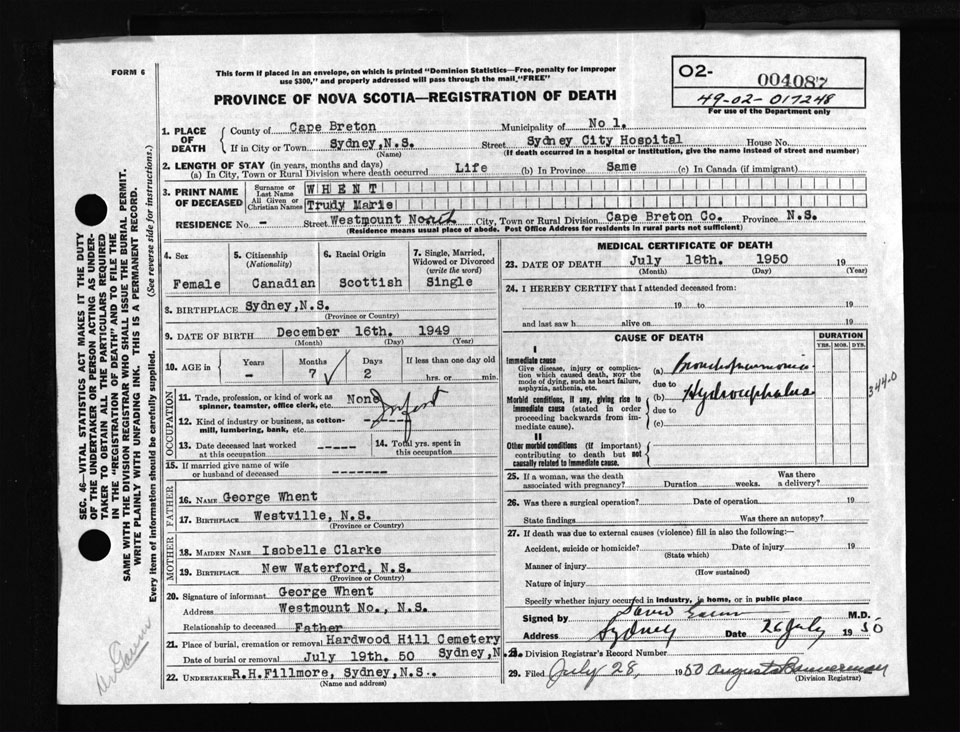 FORM 6
This form if placed in an envelope, on which is printed "Dominion Statistics—Free, penalty for improper
use $300," and properly addressed will pass through the mail "FREE"
O2-
004087
49-02-017248
For use of the Department only
PROVINCE OF NOVA SCOTIA—REGISTRATION OF DEATH
1. PLACE OF DEATH
County of Cape Breton Municipality of No 1.
If in City or Town Sydney, N.S. Street Sydney City Hospital House No.
(Name) (If death occurred in a hospital or institution, give the name instead of street and number)
2. LENGTH OF STAY (in years, months and days)
(a) In City, Town or Rural Division where death occurred Life (b) In Province Same (c) In Canada (if immigrant)
3. PRINT NAME OF DECEASED
Surname or Last Name WHENT
All Given or Christian Names Trudy Marie
RESIDENCE No. - Street Westmount North City, Town or Rural Division Cape Breton Co. Province N.S.
(Residence means usual place of abode. Post Office Address for residents in rural parts not sufficient)
4. Sex
Female
5. Citizenship
(Nationality)
Canadian
6. Racial Origin
Scottish
7. Single, Married,
Widowed or Divorced
(write the word)
Single
8. BIRTHPLACE Sydney, N.S.
(Province or Country)
9. DATE OF BIRTH December 16th. 1949
(Month) (Day) (Year)
10. AGE in
Years Months Days If less than one day old
- 7 2 hrs. or min.
OCCUPATION
11. Trade, profession, or kind of work as
spinner, teamster, office clerk, etc. None
Infant
12. Kind of industry or business, as cotton-
mill, lumbering, bank, etc.
13. Date deceased last worked
at this occupation -----
14. Total yrs. spent in
this occupation -----
15. If married give name of wife
or husband of deceased --------
FATHER
16. NAME George Whent
17. BIRTHPLACE Westville, N.S.
(Province or Country)
MOTHER
18. MAIDEN NAME Isobelle Clarke
19. BIRTHPLACE New Waterford, N.S.
(Province or Country)
20. Signature of informant George Whent
Address Westmount No., N.S.
Relationship to deceased Father
21. Place of burial, cremation or removal Hardwood Hill Cemetery
Date of burial or removal July 19th. 50 Sydney, N.S.
22. UNDERTAKER R.H.Fillmore, Sydney, N.S.
(Name and address)
MEDICAL CERTIFICATE OF DEATH
23. DATE OF DEATH July 18th. 1950 19
(Month) (Day) (Year)
24. I HEREBY CERTIFY that I attended deceased from:
19 to 19
and last saw h alive on 19
CAUSE OF DEATH
DURATION
YRS. MOS. DYS.
I
Immediate cause
Give disease, injury or complica-
tion which caused death, NOT the
mode of dying, such as heart failure,
asphyxia, asthenia, etc.
(a) Bronchopneumonia
due to
Morbid conditions, if any, giving rise to
immediate cause (stated in order
proceeding backwards from im-
mediate cause).
(b) Hydrocephalus
due to
(c)
344.0
II
Other morbid conditions (if important)
contributing to death but not
causally related to immediate cause.
25. If a woman, was the death
associated with pregnancy? Duration weeks. Was there
a delivery?
26. Was there a surgical operation? Date of operation 19
State findings Was there an autopsy?
27. If death was due to external causes (violence) fill in also the following:
Accident, suicide or homicide? Date of injury 19
(State which)
Manner of injury
(How sustained)
Nature of injury
Specify whether injury occurred in industry, in home, or in public place
Signed by David Gaum M.D.
Address Sydney Date 26 July 1950
28. Division Registrar's Record Number
29. Filed July 28, 1950 Augusta Bannerman
(Division Registrar)
SEC. 46—VITAL STATISTICS ACT MAKES IT THE DUTY
OF THE UNDERTAKER OR PERSON ACTING AS UNDER-
TAKER TO OBTAIN ALL THE PARTICULARS REQUIRED
IN THE "REGISTRATION OF DEATH" AND TO FILE THE
SAME WITH THE DIVISION REGISTRAR WHO SHALL ISSUE THE BURIAL PERMIT.
WRITE PLAINLY WITH UNFADING INK. THIS IS A PERMANENT RECORD.
Every item of information should be carefully supplied. (See reverse side for instructions.)
Dr Gaum